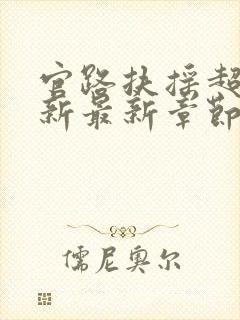 官路扶摇超
新最新章节
儒尼奥尔